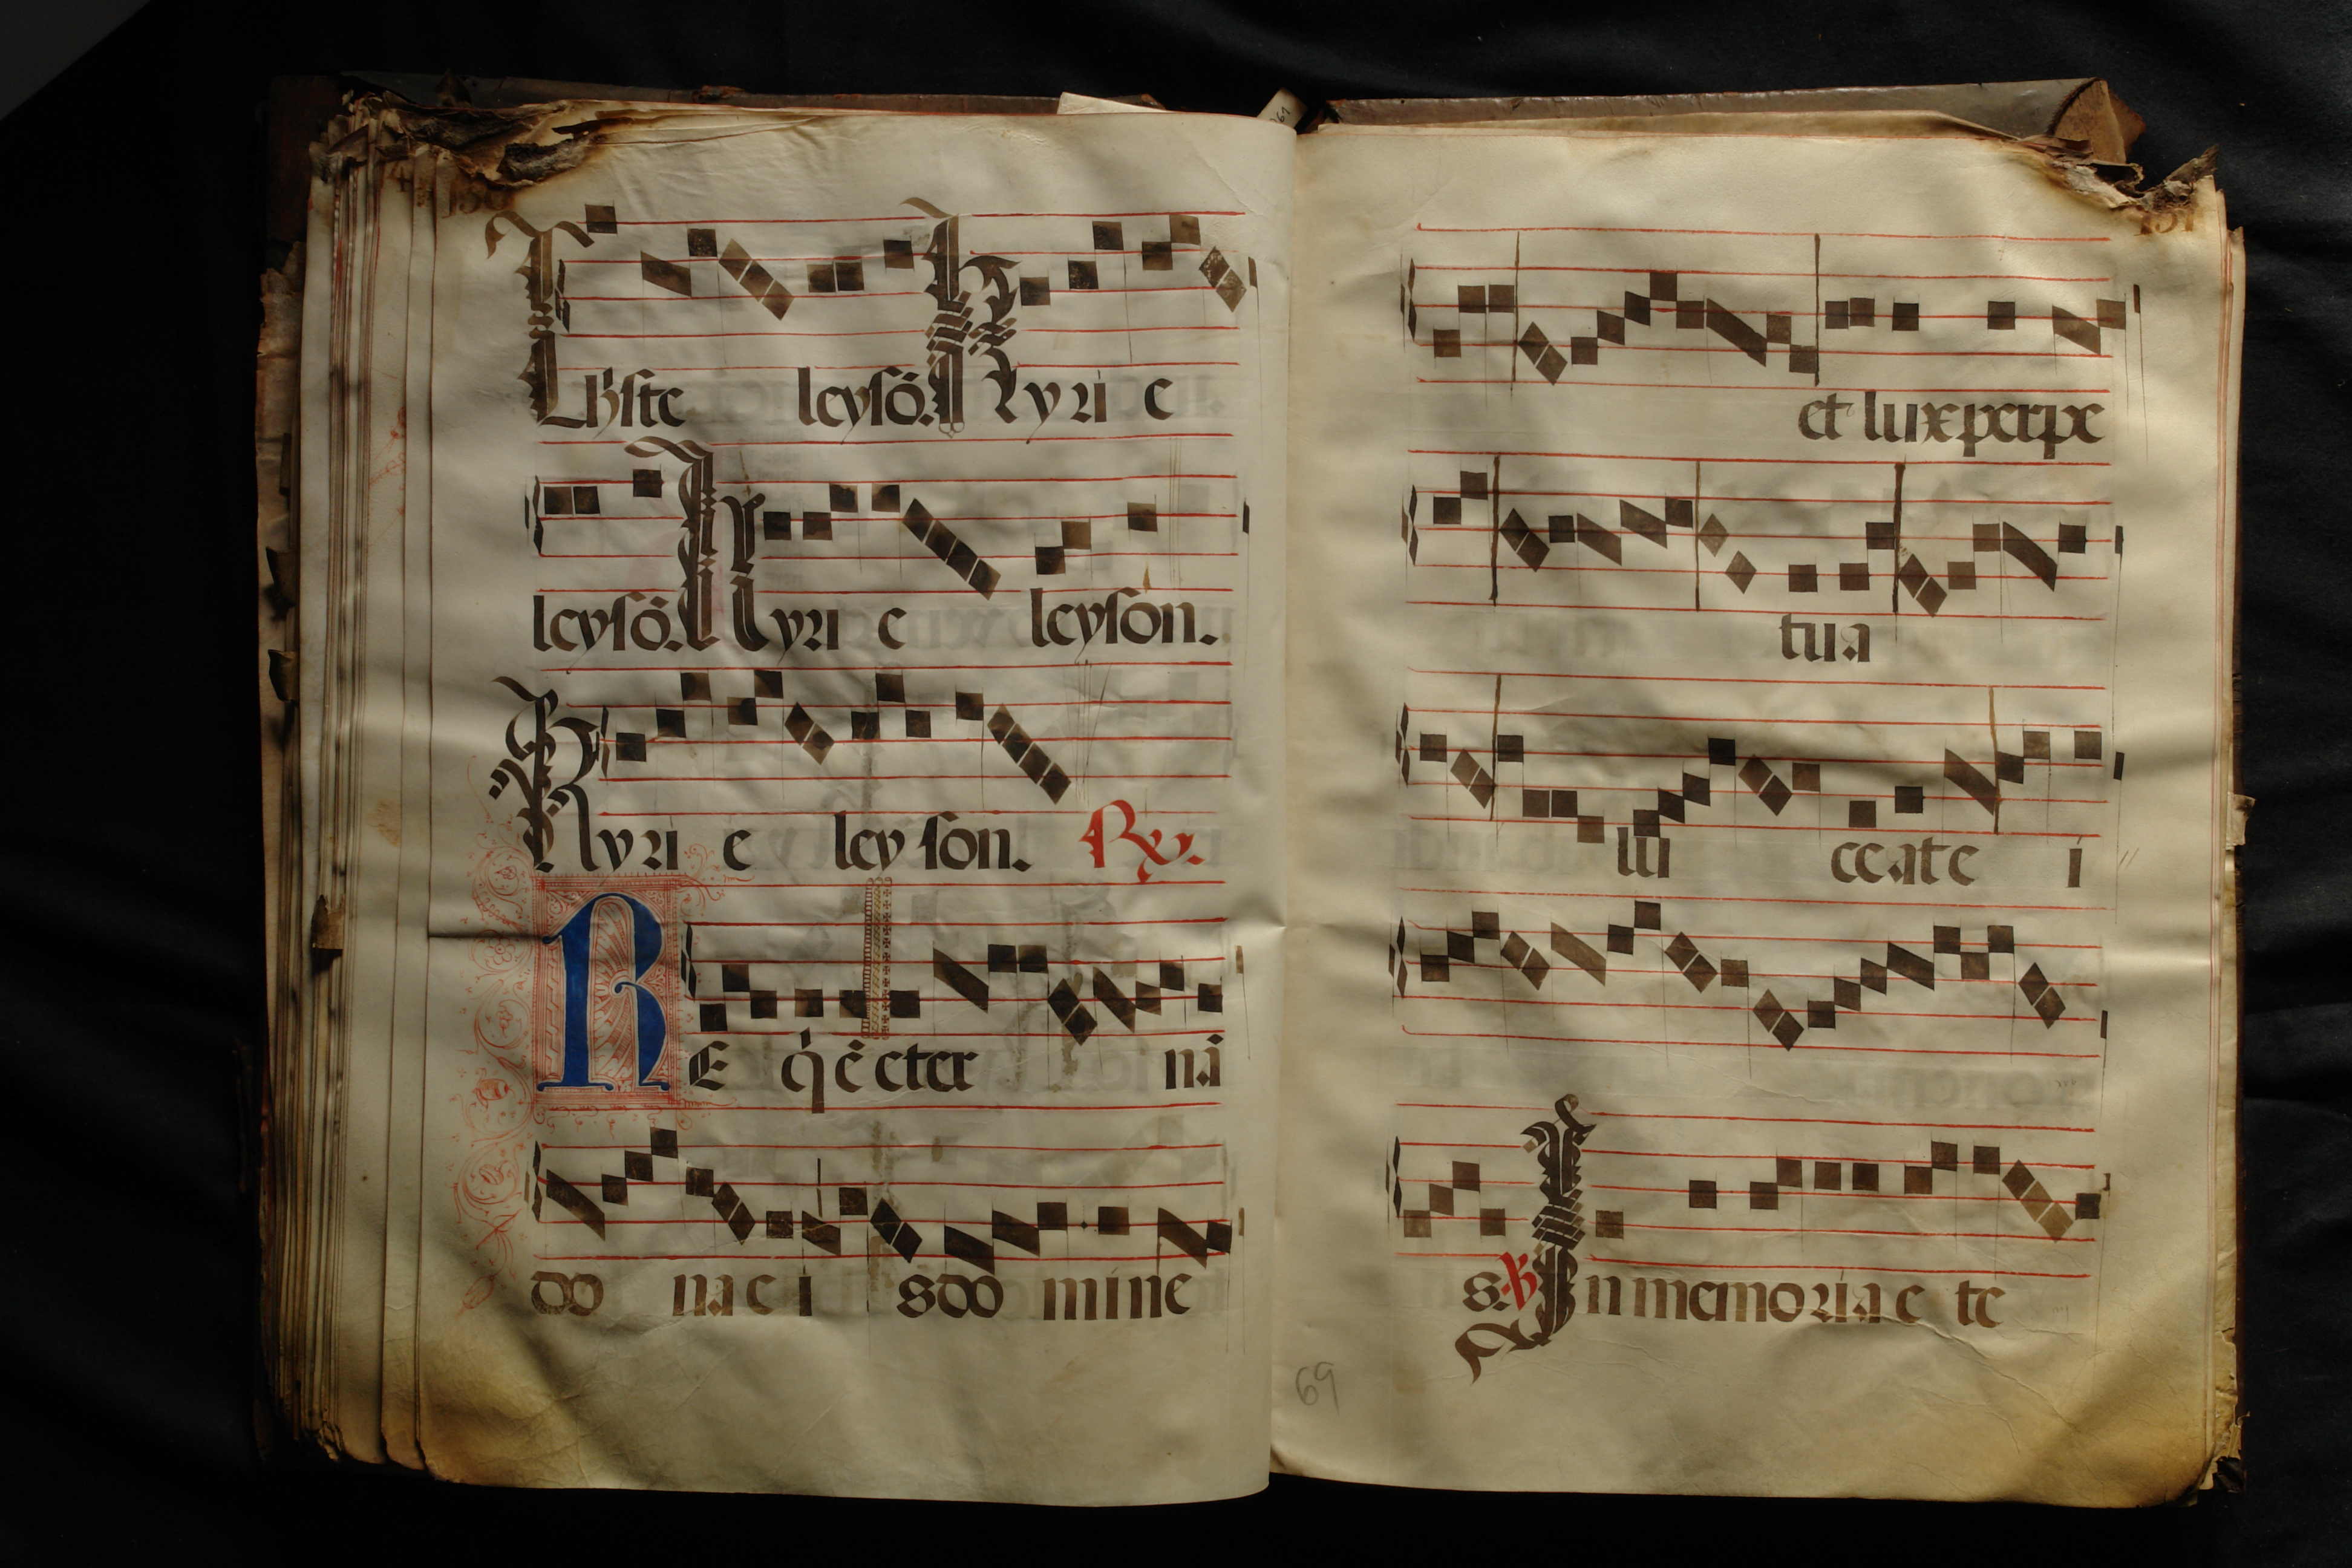 130
Xp̄iste leysō. Kyri e
leysō. Kyri e leyson.
Kyri e ley son. Rx.
RE q̇ē eter nā
do na e i s do mine
131
et lux perpe
tua
lu ceat e i
s. ℣ In memoria e te
69